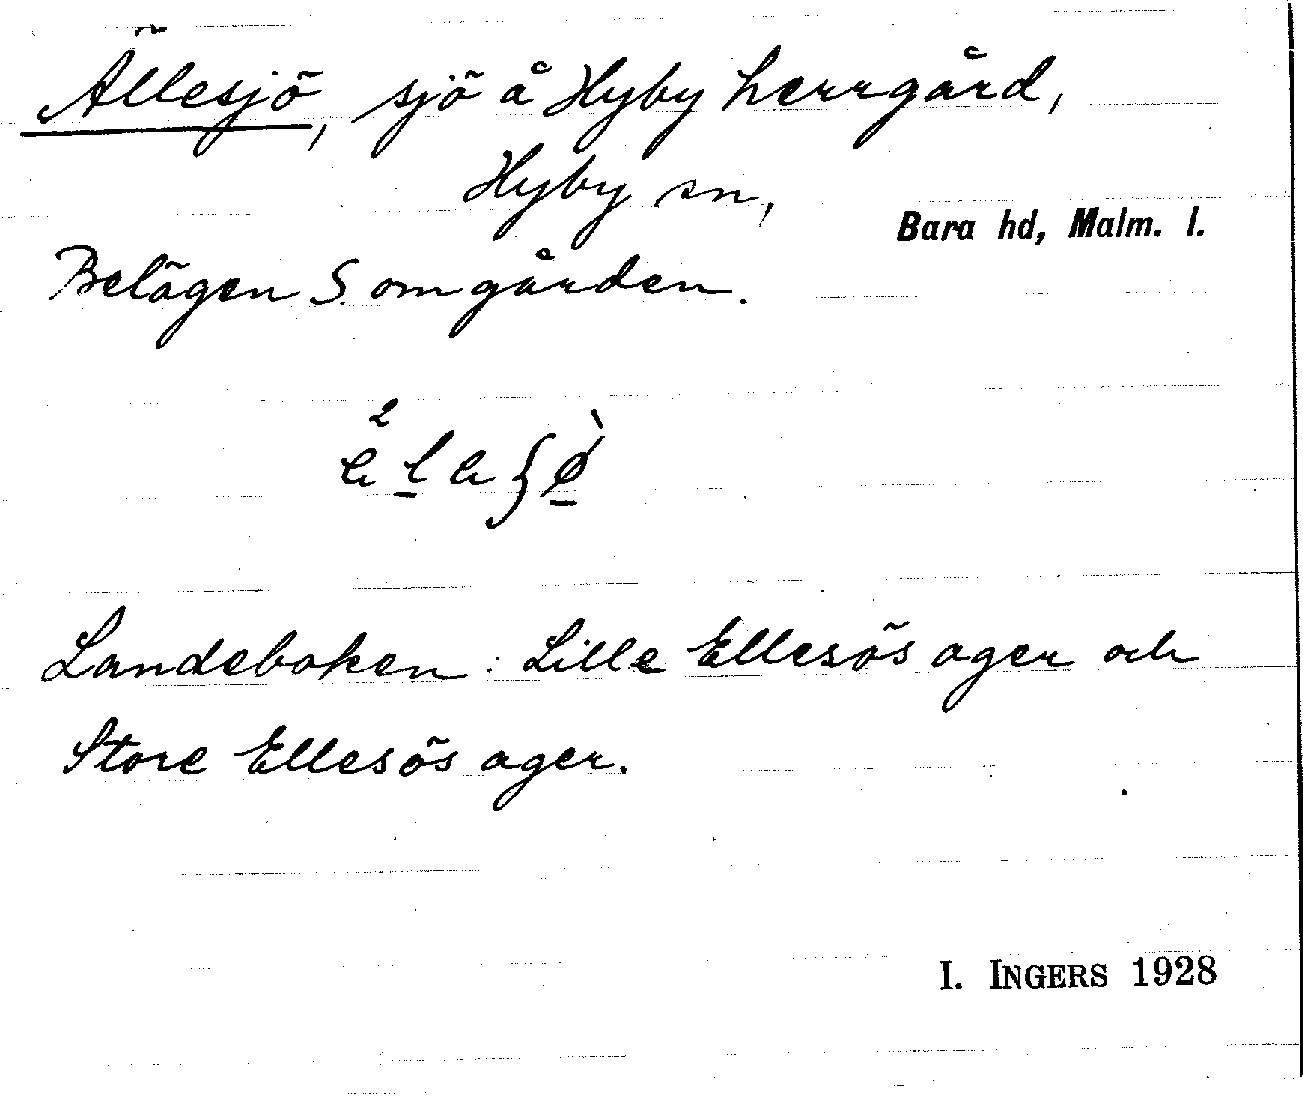 Ällesjö, sjö å Hyby herrgård,
Hyby sn,
Bara hd, Malm. l.
Belägen S. om gården.
Landeboken: Lille Ellesös ager och
Store Ellesös ager.
I. INGERS 1928